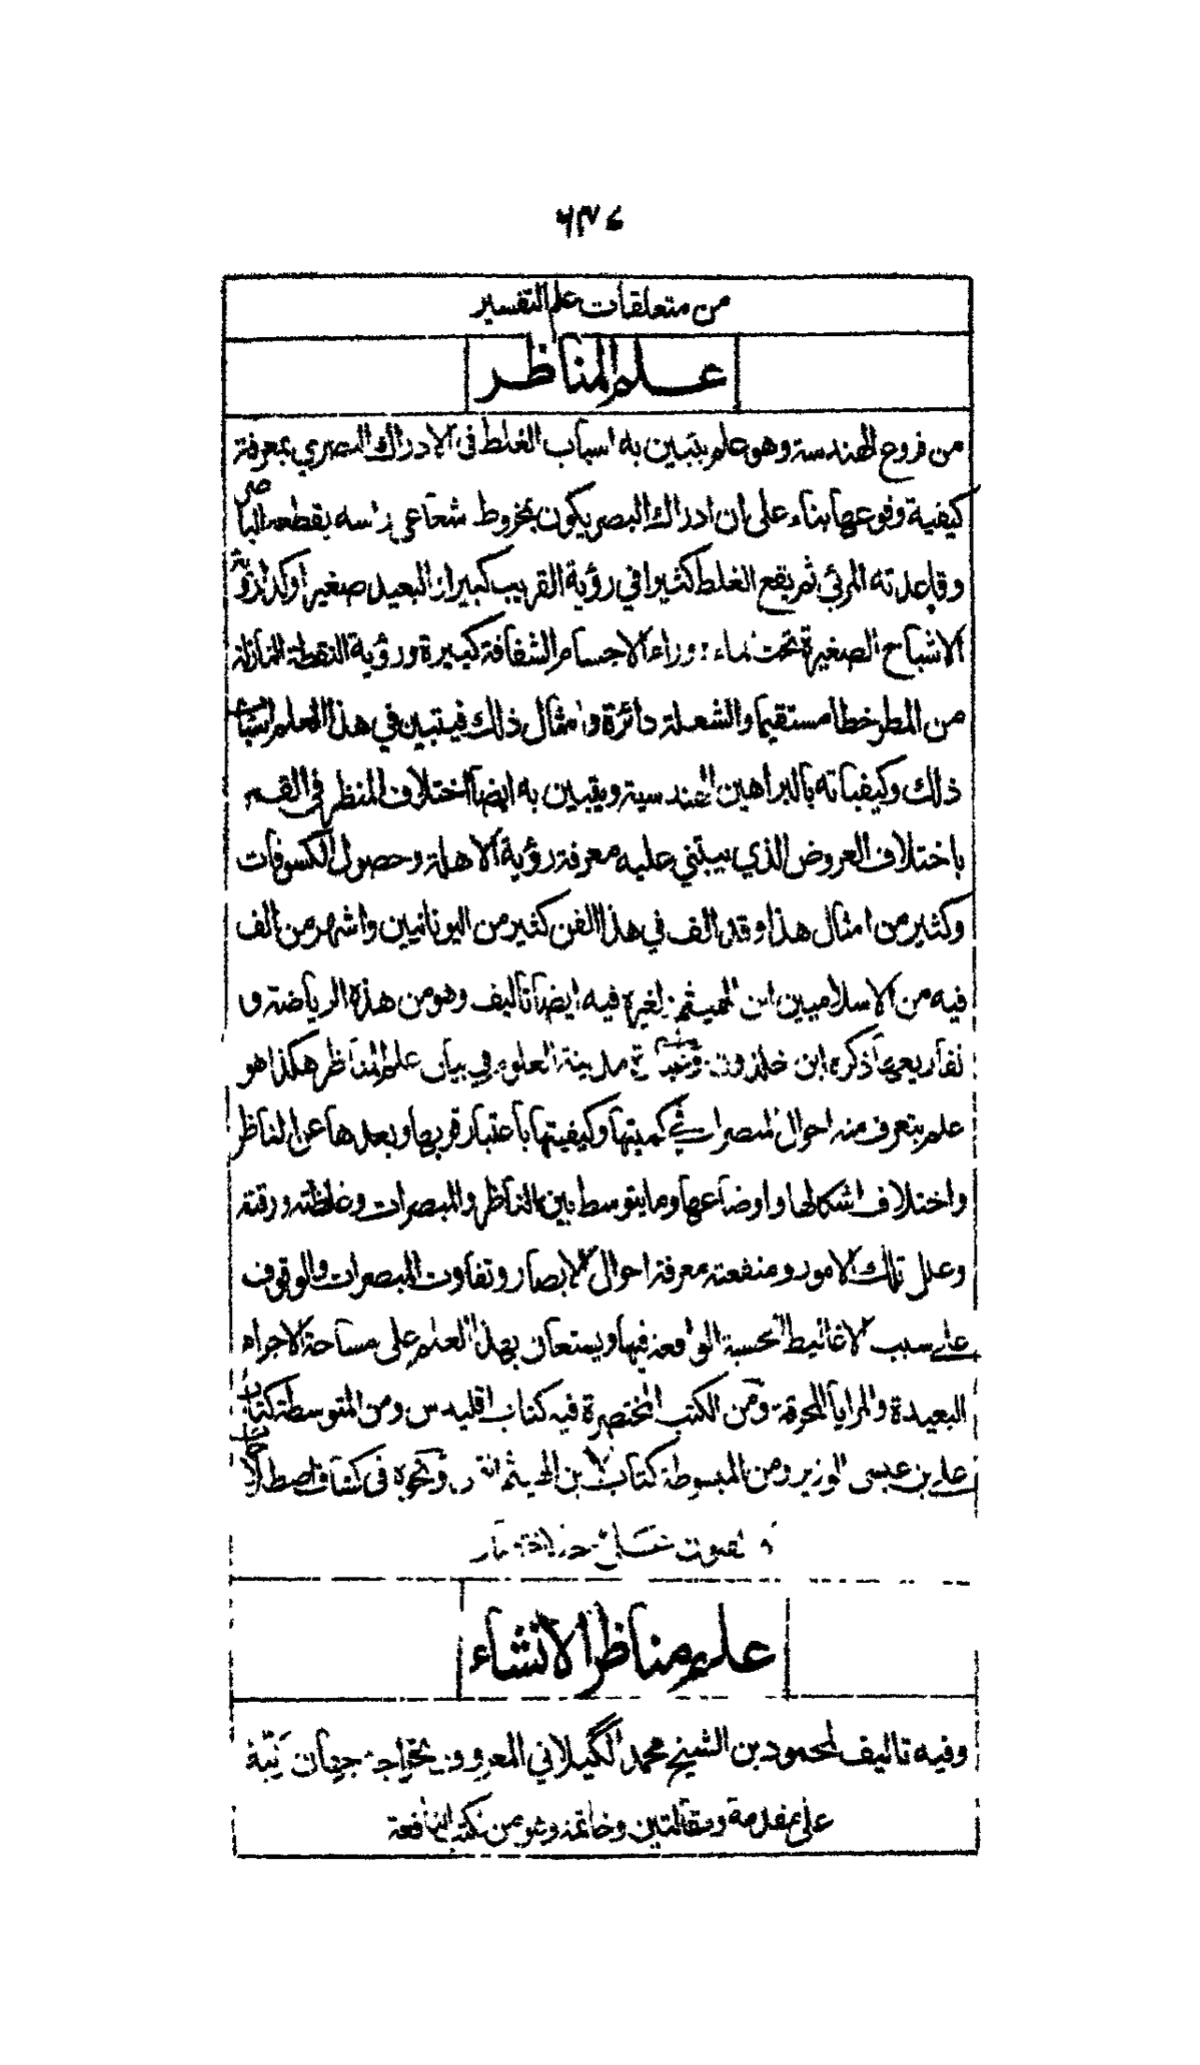 من متعلقات علم التفسير
علم المناظر
من فروع الهندسة وهو علم يتبين به اسباب الغلط في الادراك البصري بمعرفة
كيفية وقوعها بناء على ان ادراك البصر يكون بمخروط شعاعي راسه يقطعه الباصر
وقاعدته المرئي ثم يقع الغلط كثيرا في رؤية القريب كبيرا والبعيد صغيرا وكذا رؤية
الاشباح الصغيرة تحت الماء وراء الاجسام الشفافة كبيرة ورؤية النقطة النازلة
من المطر خطا مستقيما والشعلة دائرة وامثال ذلك فيتبين في هذا العلم اسباب
ذلك وكيفياته بالبراهين الهندسية ويتبين به ايضا اختلاف المنظر في القمر
باختلاف العروض الذي يبتني عليه معرفة رؤية الاهلة وحصول الكسوفات
وكثير من امثال هذا وقد الف في هذا الفن كثير من اليونانيين واشهر من الف
فيه من الاسلاميين ابن الهيثم ولغيره فيه ايضا تاليف وهو من هذه الرياضة و
تفاريعها ذكره ابن خلدون مدينة العلوم في بيان علم المناظر هكذا هو
علم يتعرف منه احوال المبصرات في كميتها وكيفيتها باعتبار قربها وبعدها عن الناظر
واختلاف اشكالها واوضاعها وما يتوسط بين الناظر والمبصرات وغلظته ورقته
وعلل تلك الامور ومنفعته معرفة احوال الابصار وتفاوت المبصرات والوقوف
على سبب الاغاليط الحسية الواقعة فيها ويستعان بهذا العلم على مساحة الاجرام
البعيدة والمرايا المحرقة ومن الكتب المختصرة فيه كتاب اقليدس ومن المتوسطة كتاب
علي بن عيسى الوزير ومن المبسوطة كتاب لابن الهيثم ونحوه في كشاف اصطلاحات
علم مناظر الانشاء
وفيه تاليف لمحمود بن الشيخ محمد الگيلاني المعروف بخواجه جهان رتبه
على مقدمة ومقالتين وخاتمة وهو من الكتب النافعة